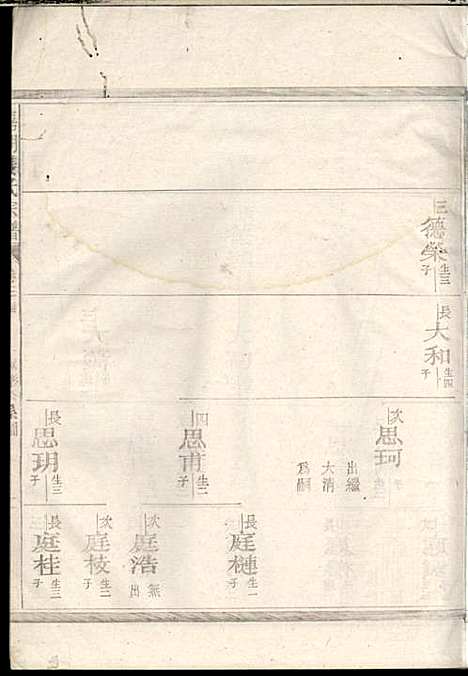 三德榮生三子
長大和生四子
次思珂出繼大淸爲嗣
四思甫生二子
長思玥生三子
長庭槤生一子
次庭浩無出
次庭枝生二子
長庭桂生三子